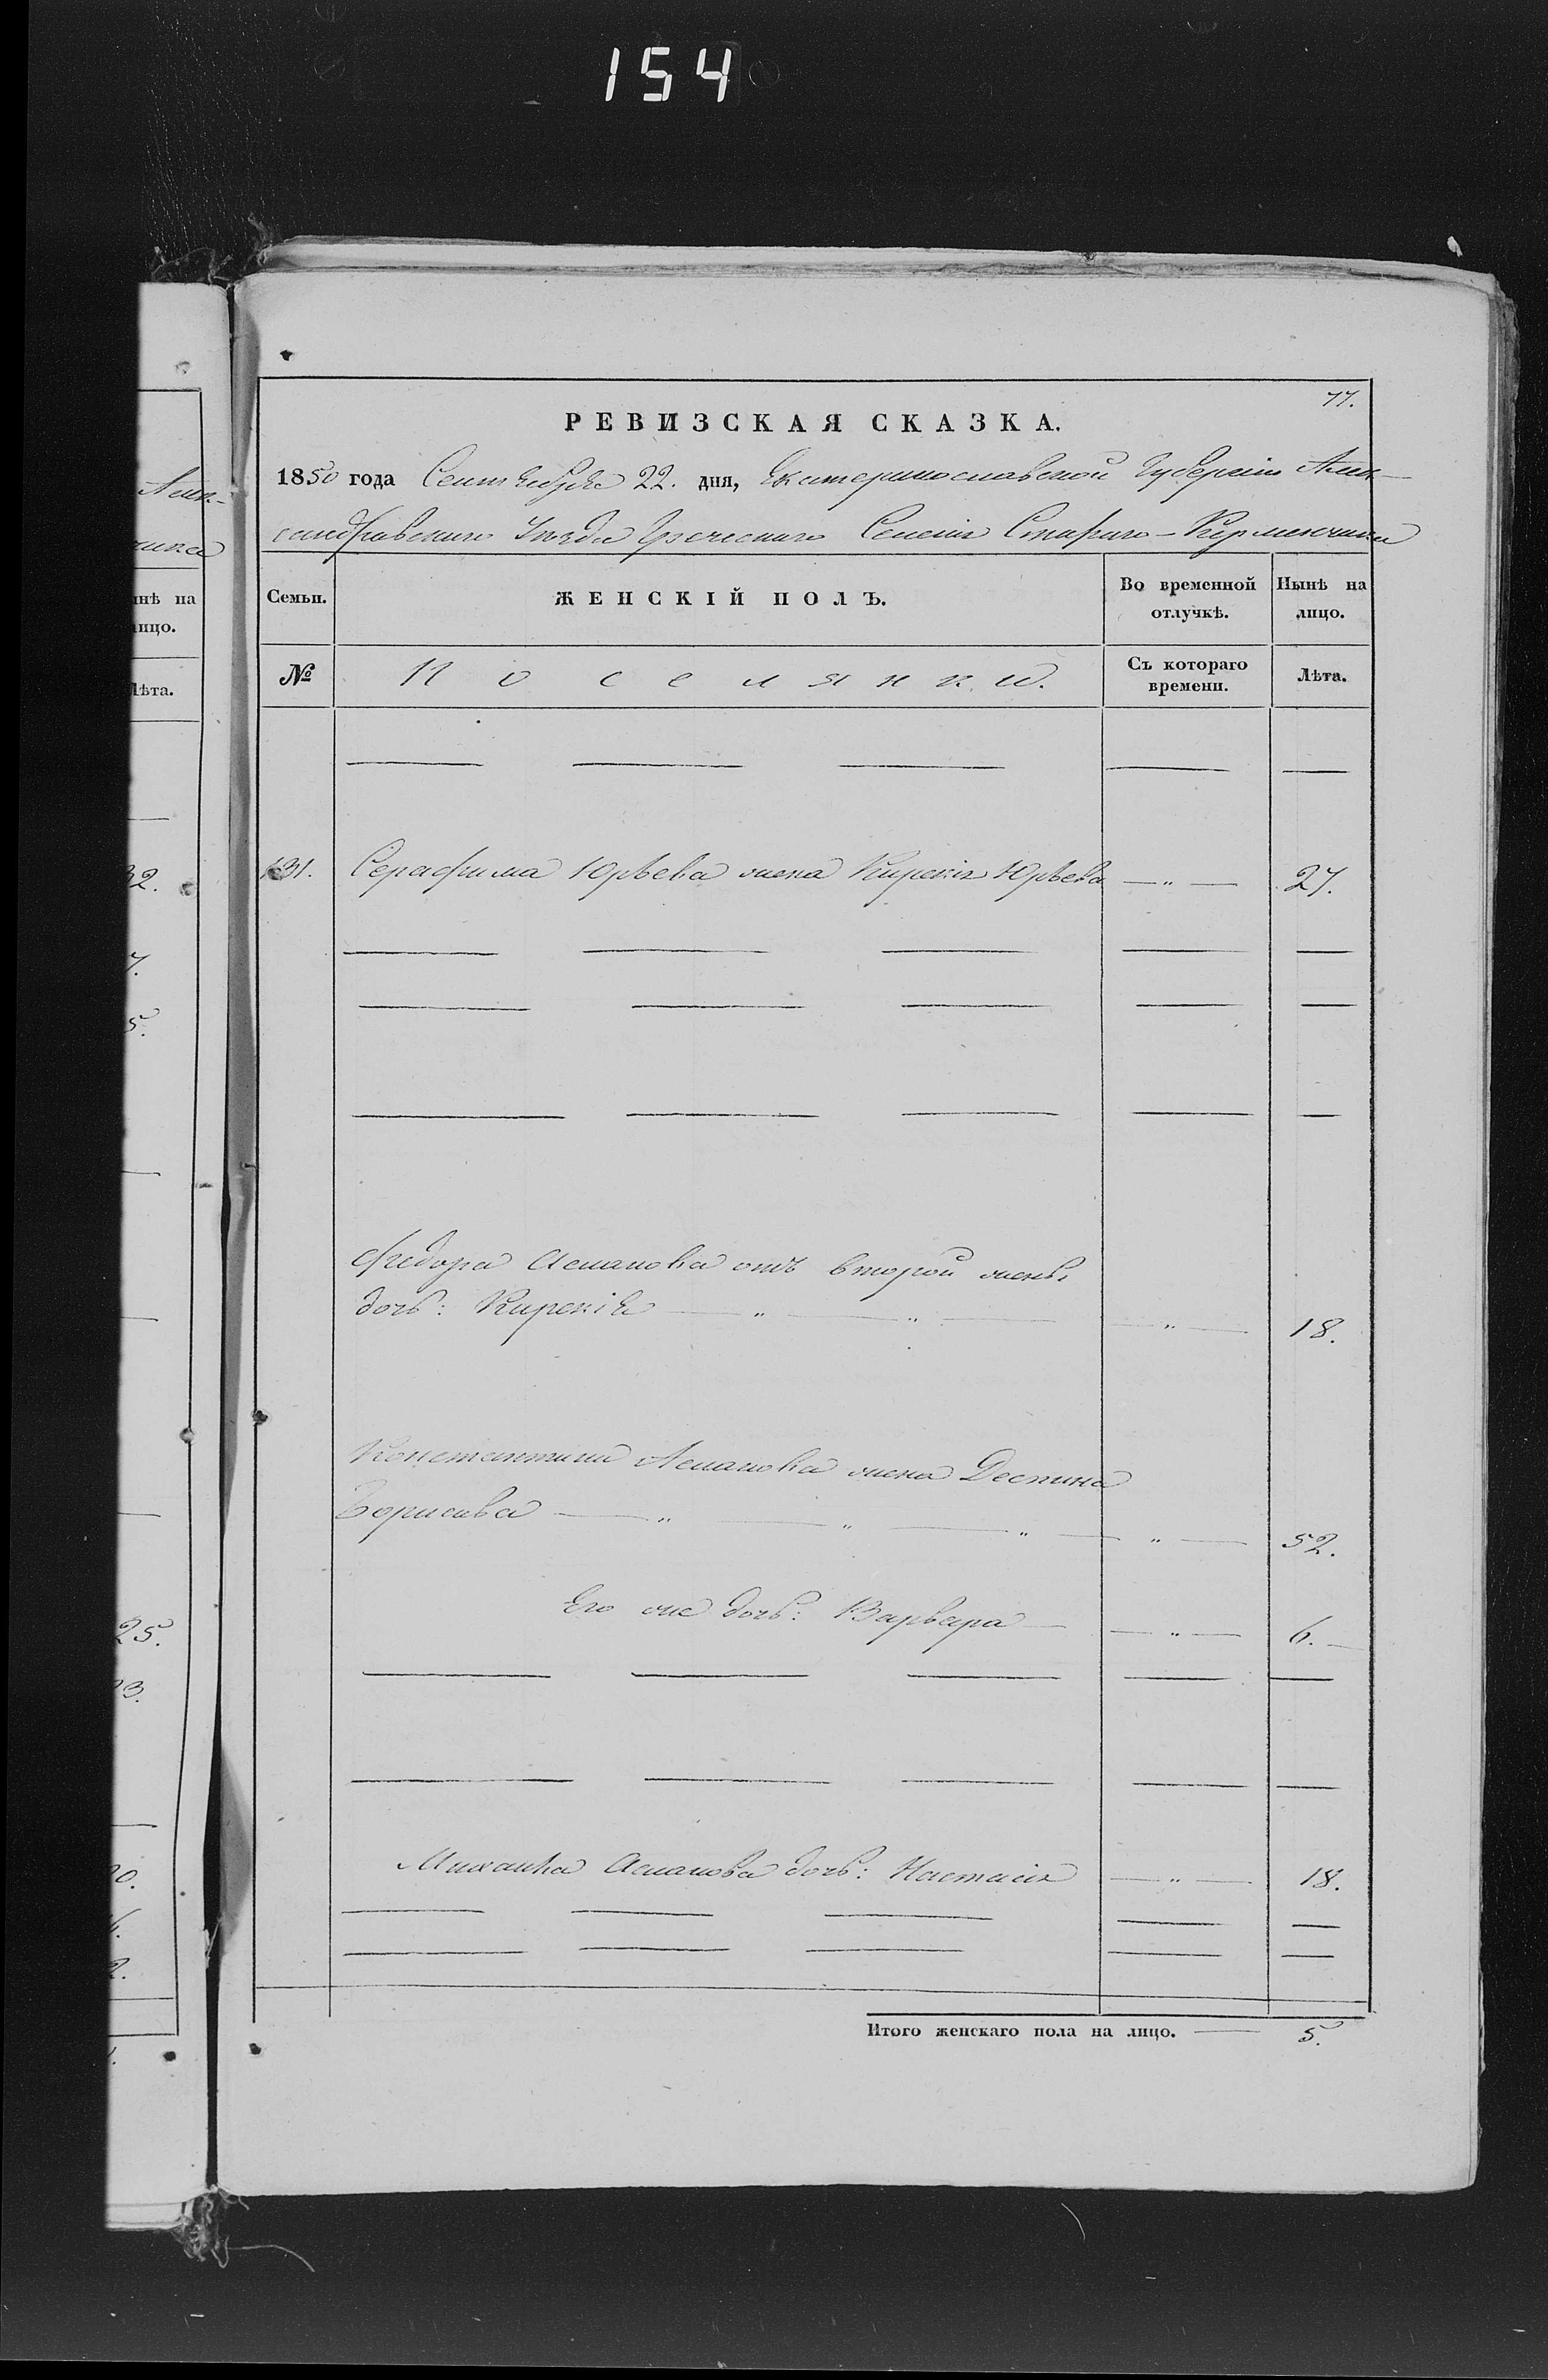 154
77.
РЕВИЗСКАЯ СКАЗКА.
1850 года Сентября 22. дня, Екатеринославской Губерніи Алек-
сандровскаго Уѣзда Греческаго Селенія Стараго-Керменчика
Семьи.
ЖЕНСКІЙ ПОЛЪ.
Во временной отлучкѣ.
Нынѣ на лицо.
№
Поселянки.
Съ котораго времени.
Лѣта.
131. Серафима Юрьева жена Кирекія Юрьева — " — 27.
Федора Асланова отъ второй жены
дочь: Кирекія — " — " — — " — 18.
Константина Асланова жена Деспина
Борисова — " — " — " — " — 52.
Его же дочь: Варвара — — " — 6.
Михаила Асланова дочь: Настасія — " — 18.
Итого женскаго пола на лицо. — 5.
Алек-
чика
нѣ на
ицо.
Лѣта.
32.
7.
5.
25.
3.
0.
2.